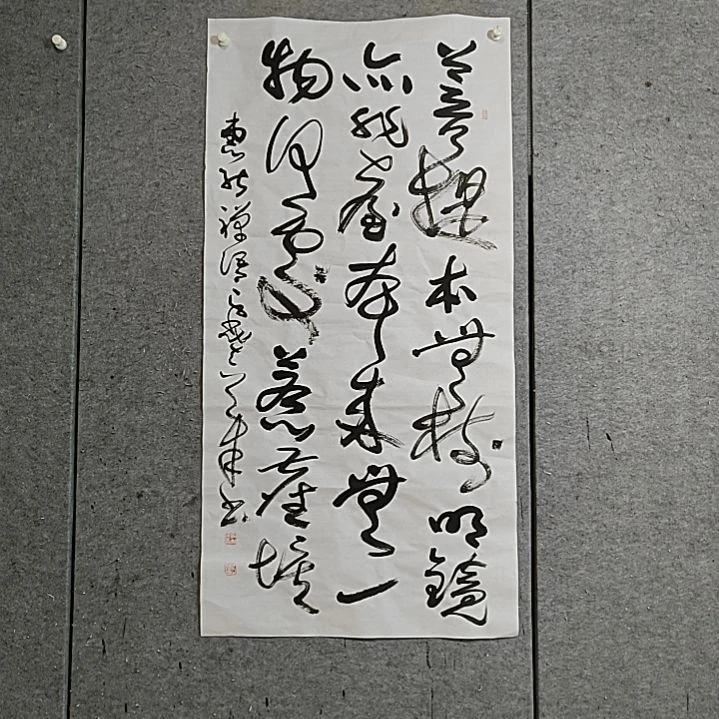 菩提本無樹明鏡
亦非臺本來無一
物何處惹塵埃
惠能禪語書